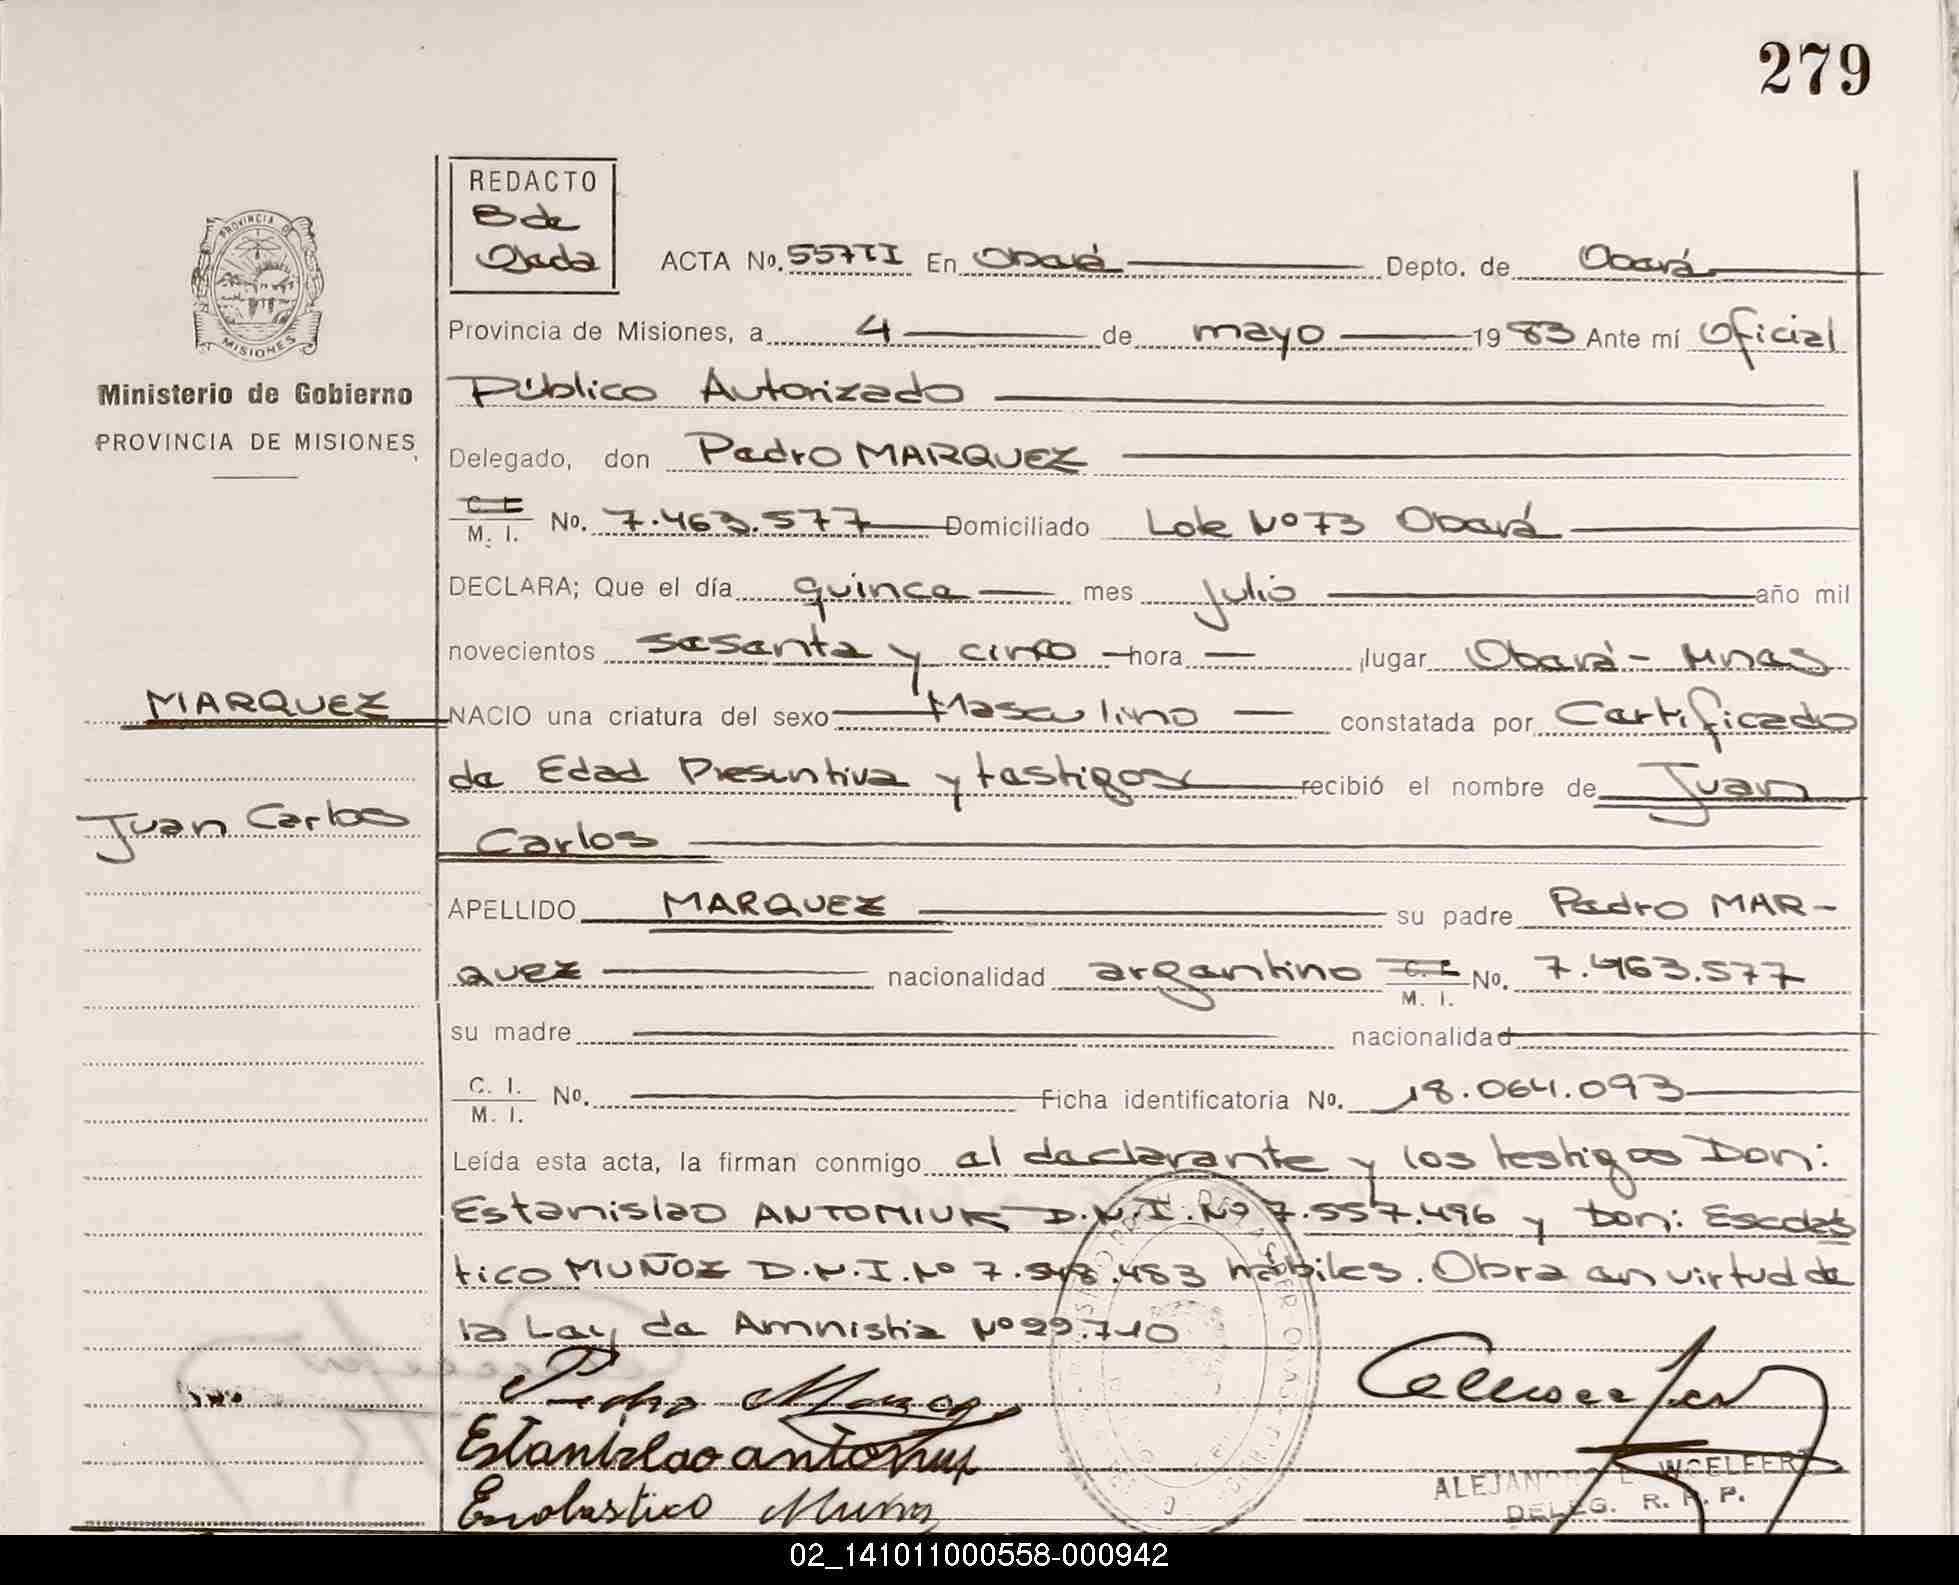 279
REDACTO
B de
Ojeda
PROVINCIA DE
MISIONES
ACTA No. 557 II En Oberá Depto. de Oberá
Provincia de Misiones, a 4 de mayo 1983 Ante mí Oficial
Ministerio de Gobierno
PROVINCIA DE MISIONES
Público Autorizado
Delegado, don Pedro MARQUEZ
C. I.
M. I. No. 7.463.577 Domiciliado Lote Nº 73 Oberá
DECLARA; Que el día quince mes julio año mil
novecientos sesenta y cinco hora lugar Oberá - Mnes
MARQUEZ
NACIO una criatura del sexo Masculino constatada por Certificado
de Edad Presuntiva y testigos recibió el nombre de Juan
Juan Carlos
Carlos
APELLIDO MARQUEZ su padre Pedro MAR-
QUEZ nacionalidad argentino C. I. M. I. No. 7.463.577
su madre nacionalidad
C. I.
M. I. No. Ficha identificatoria No. 18.064.093
Leída esta acta, la firman conmigo el declarante y los testigos Don:
Estanislao ANTONIUK D.N.I. Nº 7.557.496 y Don: Escolás
tico MUÑOZ D.N.I. Nº 7.548.483 hábiles. Obra en virtud de
la Ley de Amnistía Nº 22.710
Pedro Marquez
Estanislao
Escolastico Muños
ALEJANDRO E. WOELFERT
DELEG. R. P. P.
02_141011000558-000942